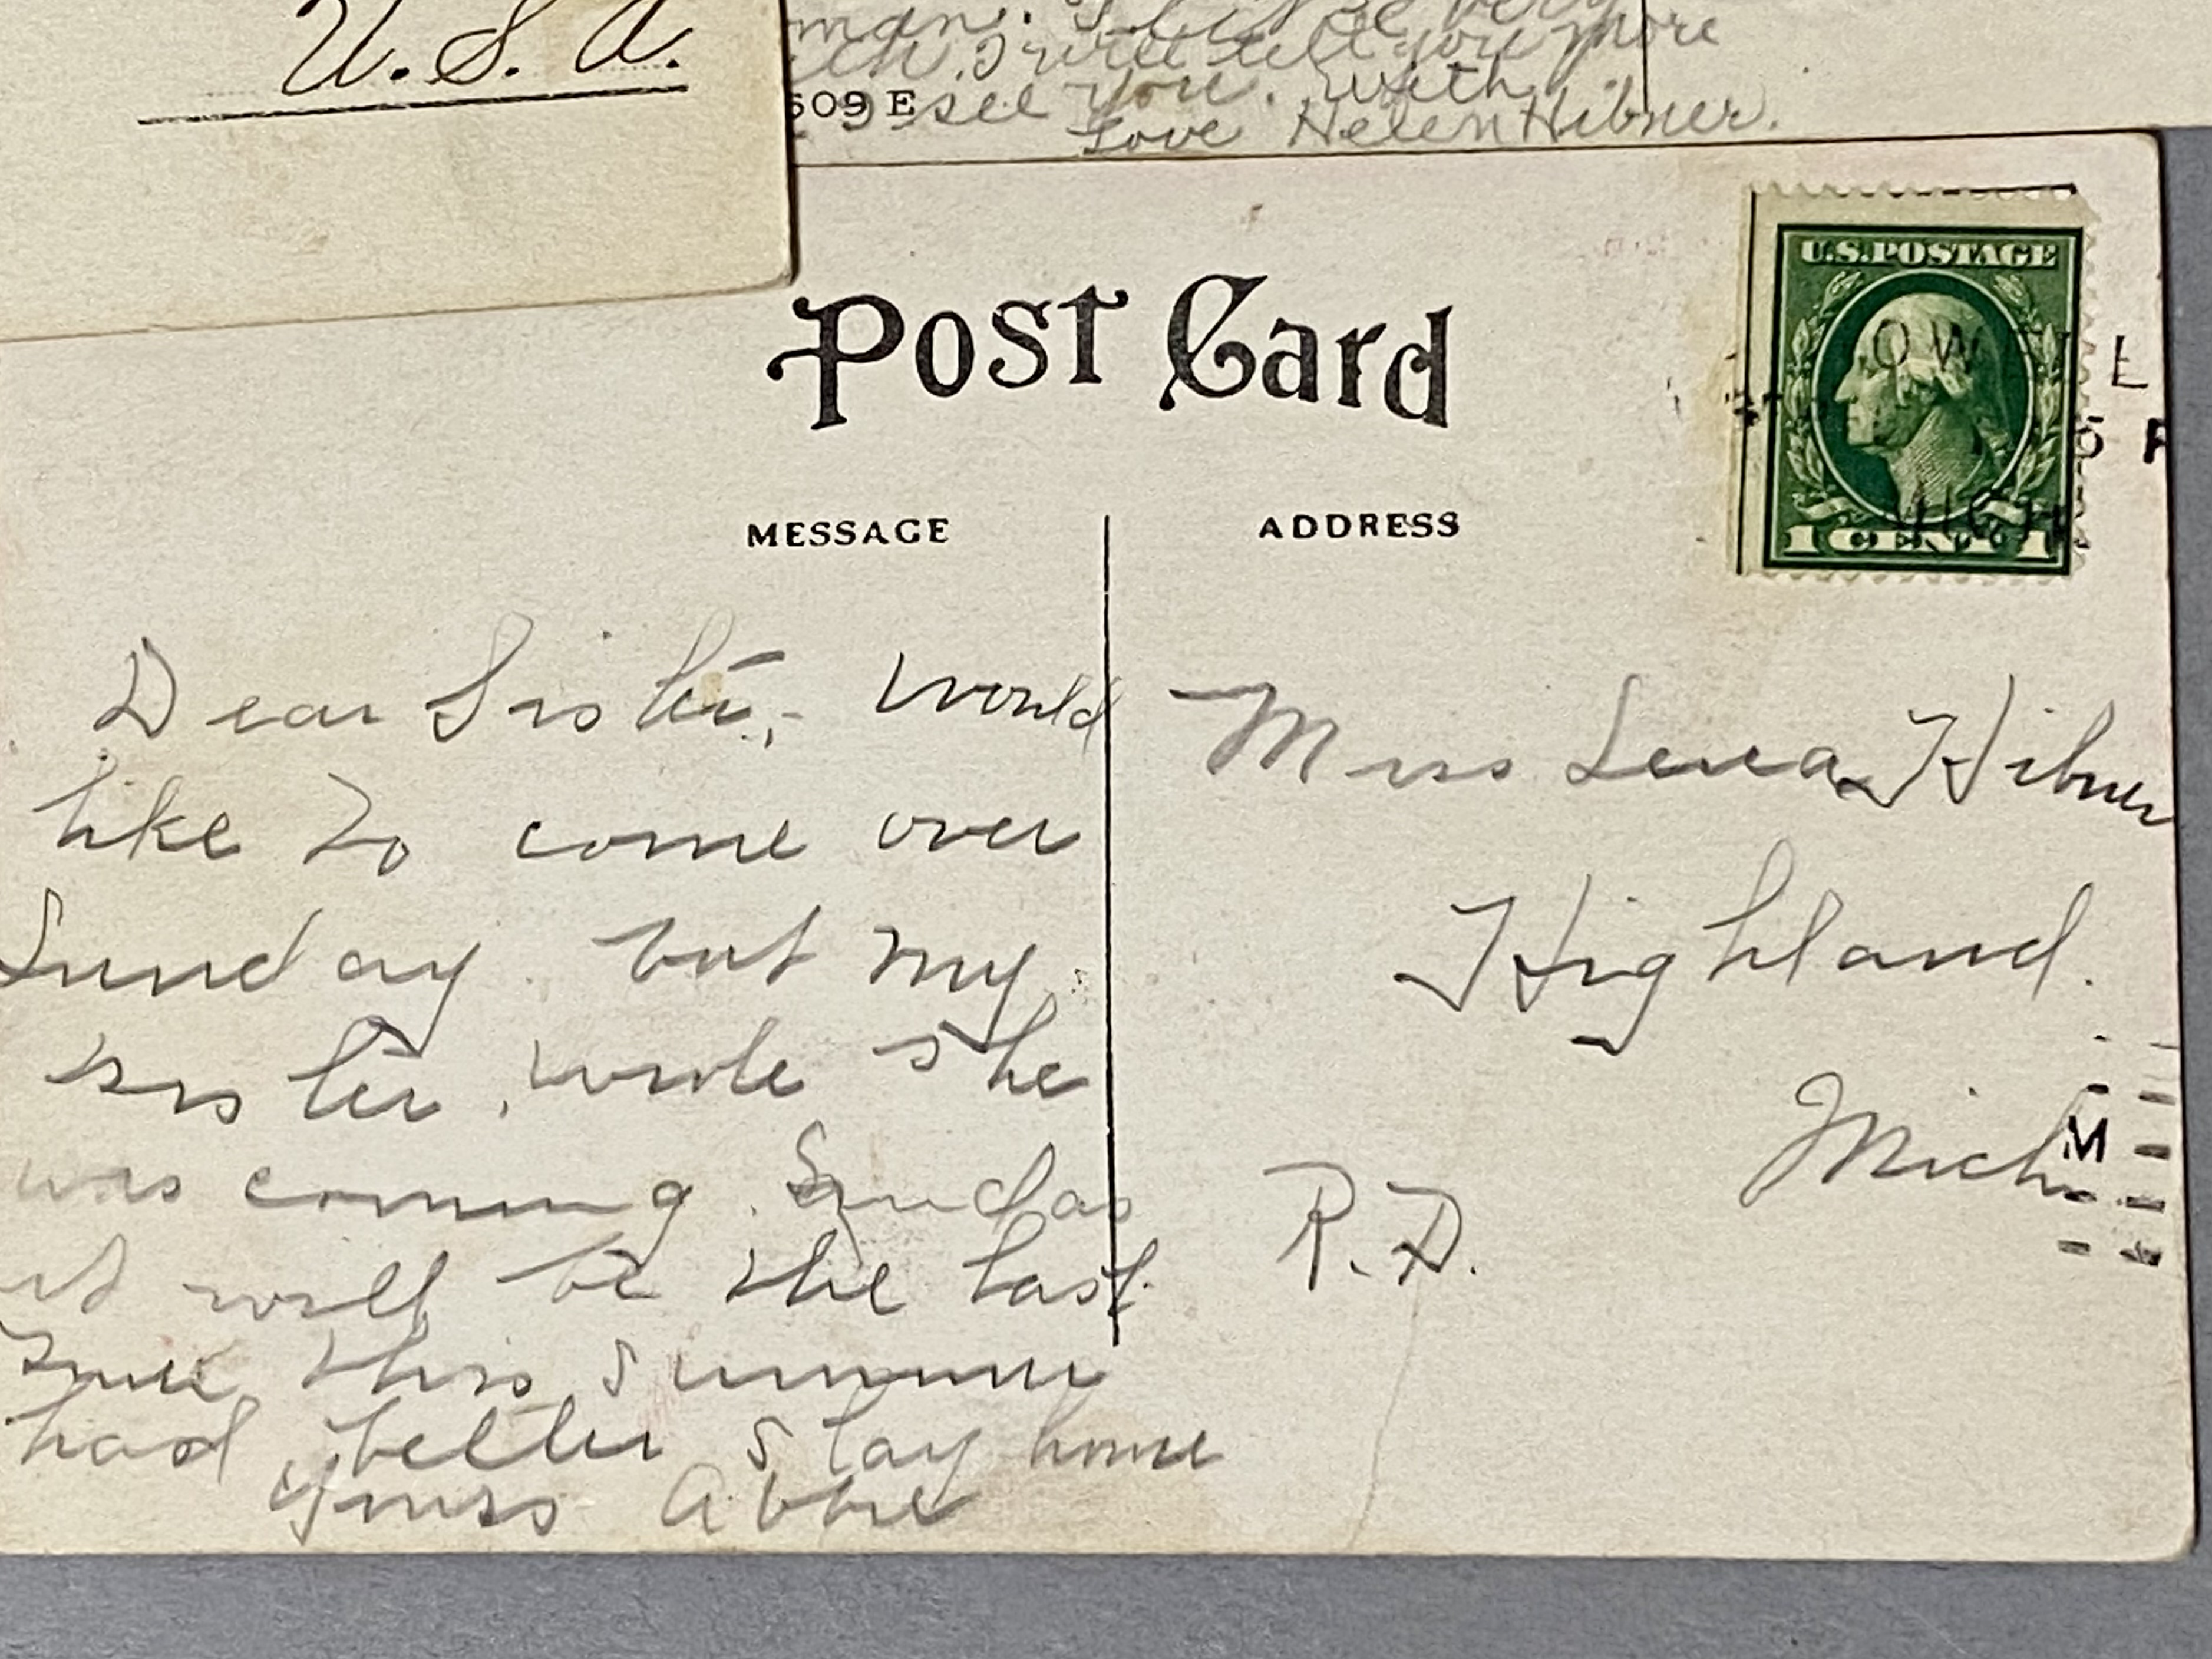 U. S. A.
man.
I will tell you more
609 E see you. With
Love Helen Hibner.
Post Card
U.S. POSTAGE
1 CENT 1
OWELL
MICH
MESSAGE
ADDRESS
Dear Sister,- Would
like to come over
Sunday but my
sister wrote she
was coming Sunday
it will be the last
time this summer
had better stay home
Yours Abbie
Miss Lena Hibner
Highland.
Mich
M
R. D.